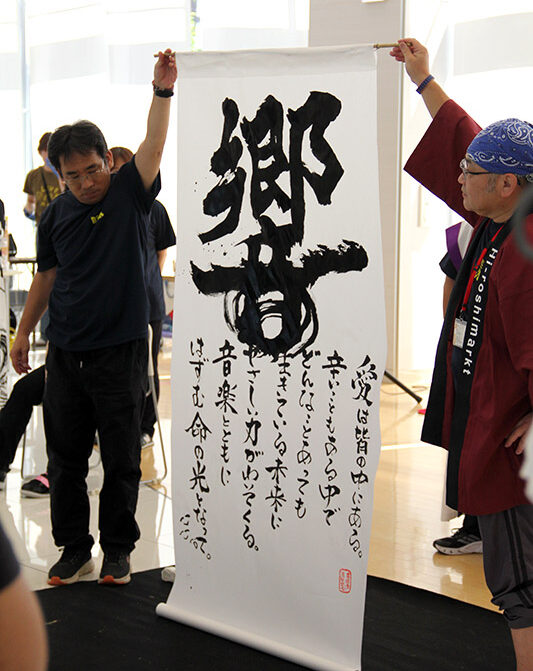 響
愛は皆の中にある。
辛いこともある中で
どんなことあっても
ている未来に
やさしい力がわいてくる。
音楽とともに
はずむ命の光となって。
Hi-roshimarkt